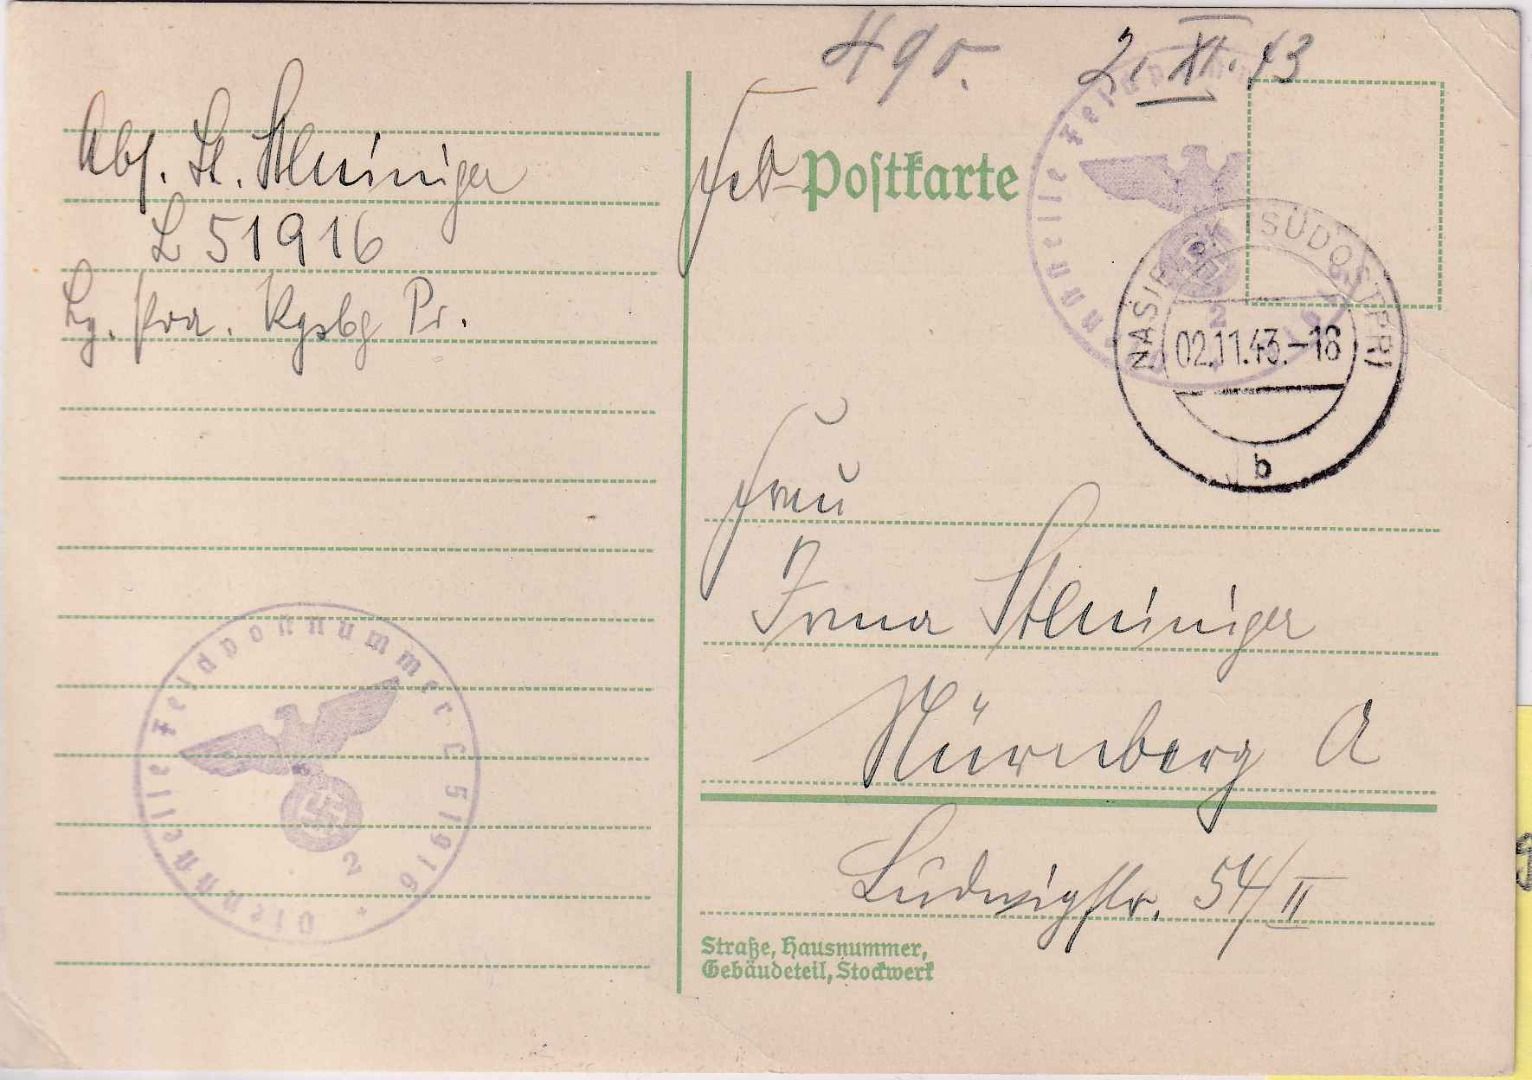 490. 2. XI. 43
Abs. Lt. Steininger
L 51916
Lg. Pa. Kgsbg Pr.
Feld-Postkarte
Dienststelle Feldpostnummer
2
NASIELSK (SÜDOSTPR)
02.11.43.-18
b
Frau
Irma Steininger
Nürnberg A
Ludwigstr. 54/II
Straße, Hausnummer,
Gebäudeteil, Stockwerk
Dienststelle Feldpostnummer L 51916
2